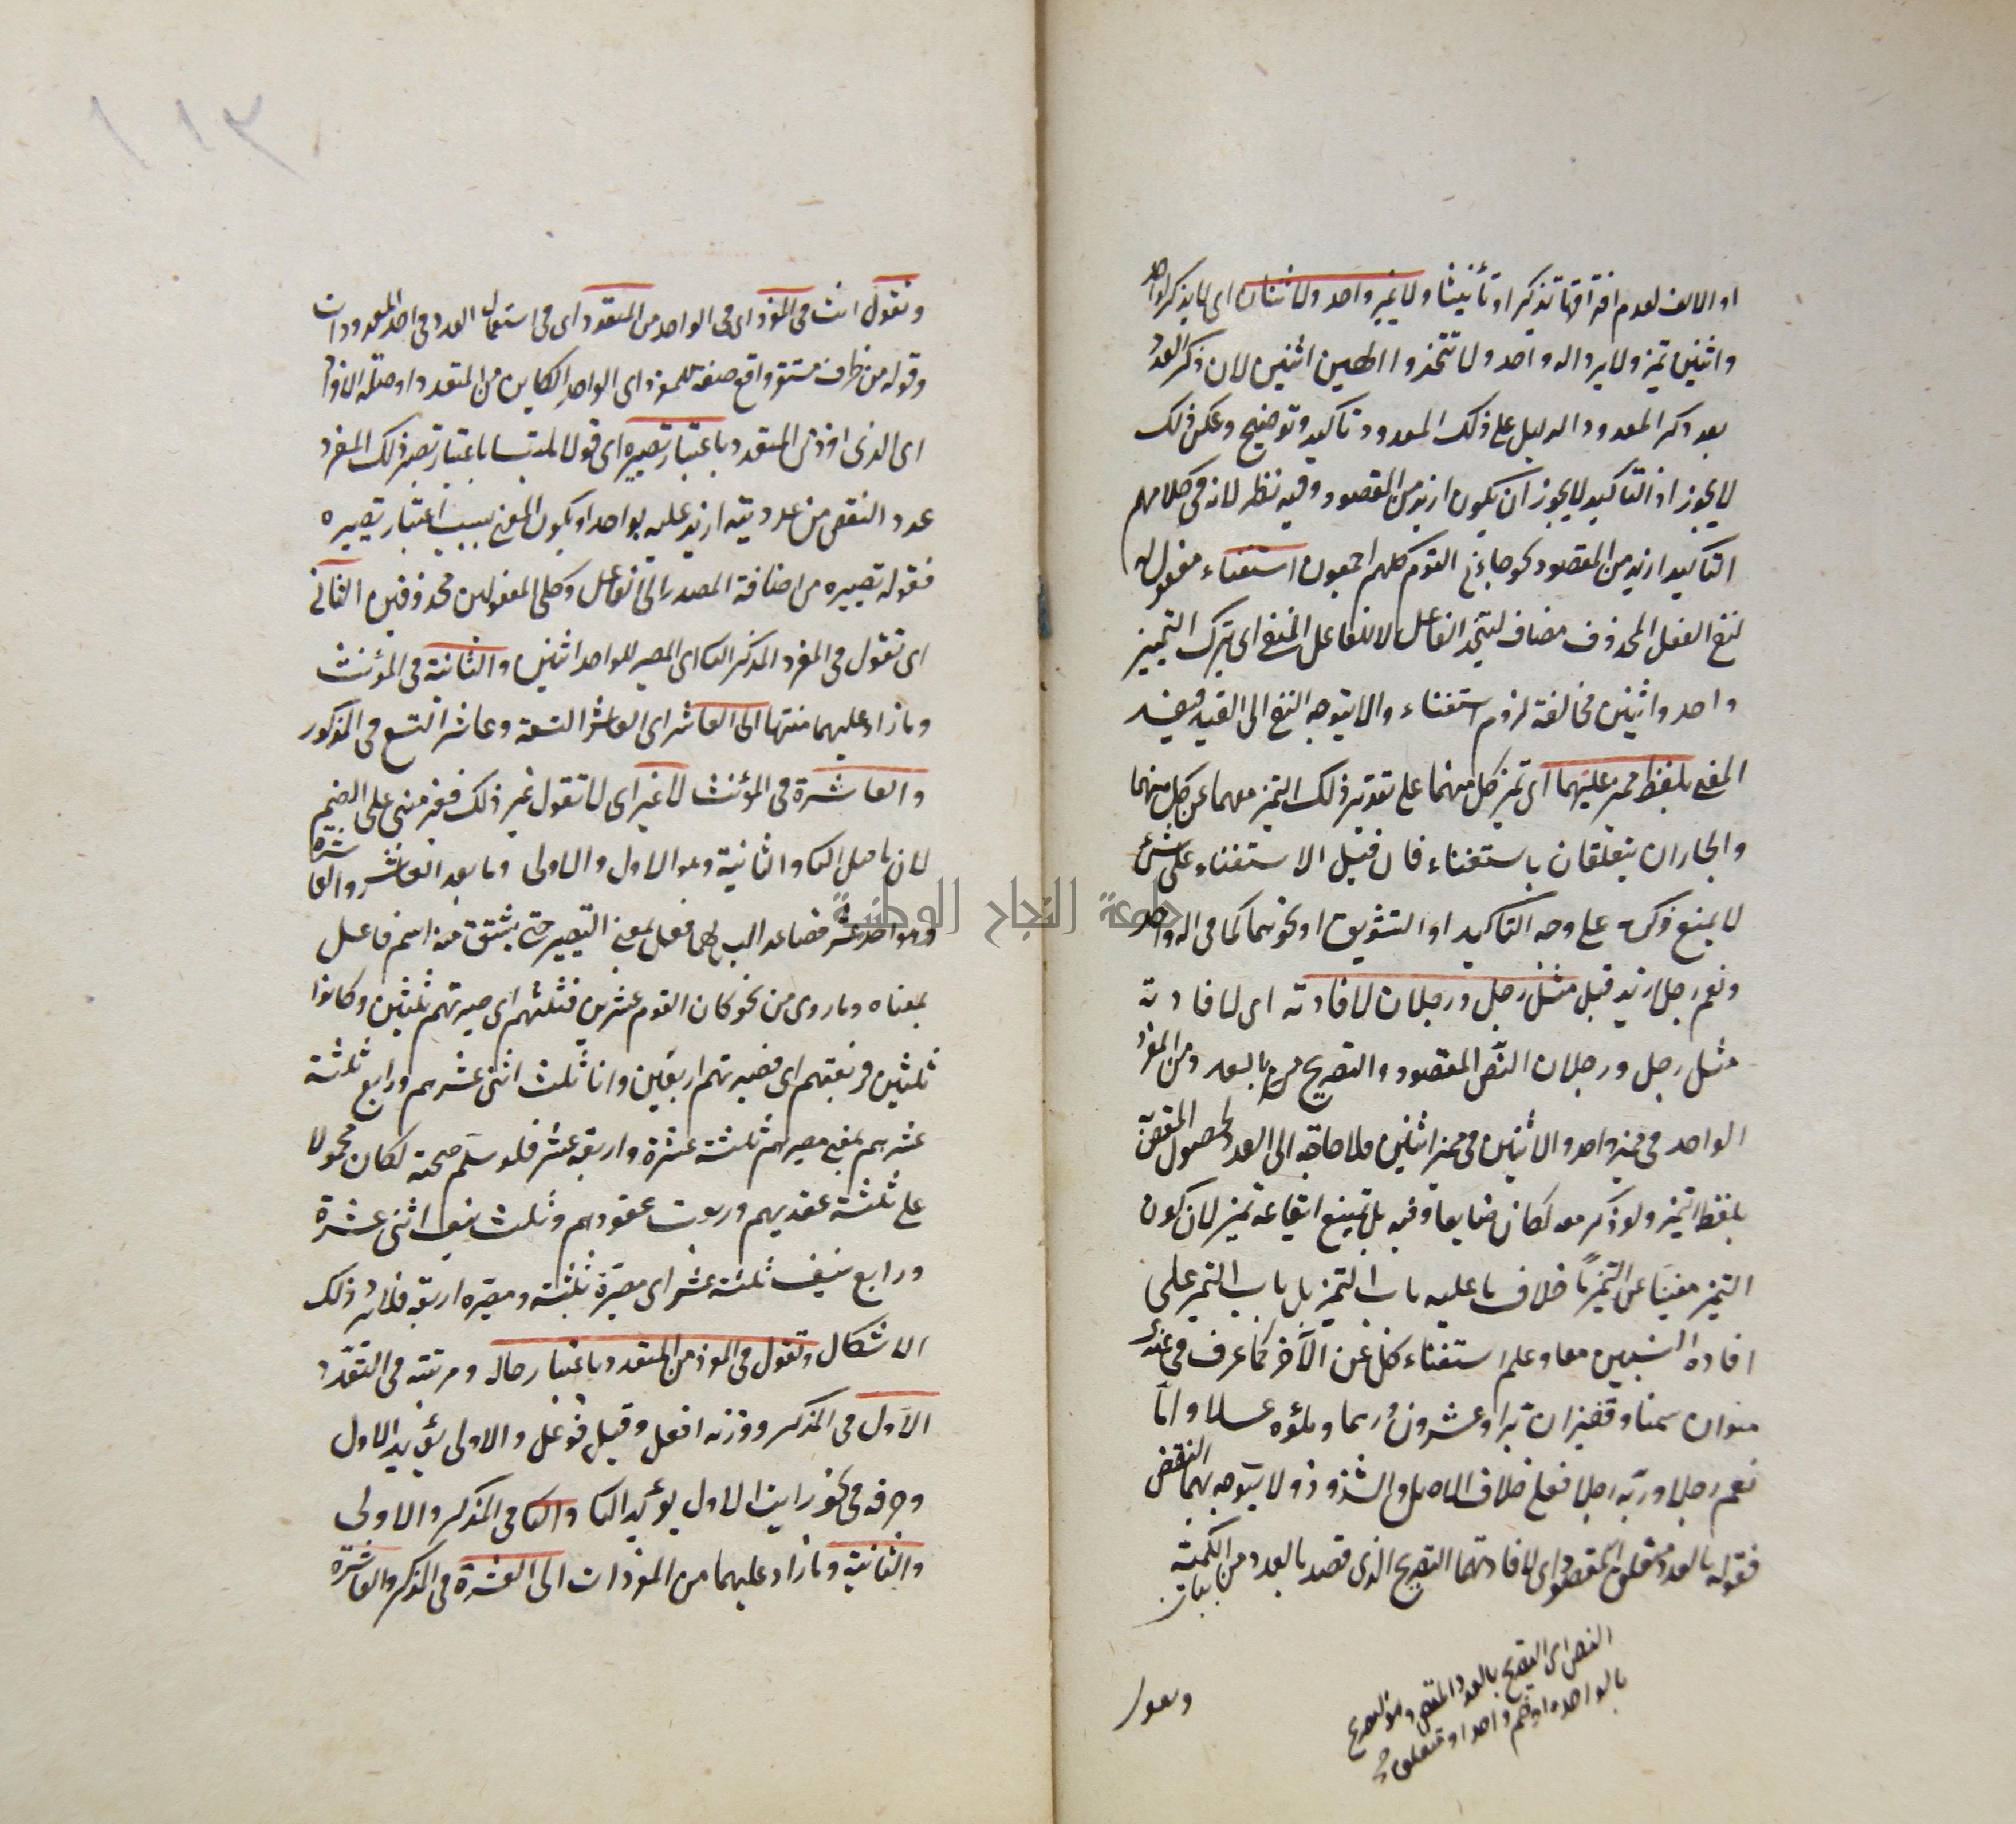 او الالف لعدم افتراقها تذكيرا وتأنيثا ولا يميز واحد ولا اثنان اى لا يذكر لواحد
واثنين تميز ولا يرد اله واحد ولا تتخذوا الهين اثنين لان ذكر العدد
بعد ذكر المعدود الدليل على ذلك المعدود تاكيد وتوضيح وعكس ذلك
لا يجوز اذ التاكيد لا يجوز ان يكون ازيد من المقصود وفيه نظر لانه فى كلامهم
التاكيد ازيد من المقصود نحو جاءنى القوم كلهم اجمعون استغناء مفعول له
لنفى الفعل المحذوف مضاف ليتحد الفاعل لا للفاعل المنفى اى يترك التمييز
واحد واثنين مخالفة لزوم استغناء والا يتوجه النفى الى القيد فيفسد
المعنى بلفظ مميز عليهما اى تميز كل منهما على تقدير ذلك التميز معهما عن كل منهما
والجاران يتعلقان باستغناء فان قيل الاستغناء على شئ
لا يمنع ذكره على وجه التاكيد او التشويق او نحوهما كما فى اله واحد
ونعم رجلا زيد قبل مثل رجل ورجلان لافادته اى لافادته
مثل رجل ورجلان النص المقصود والتصريح بالعدد ومن المفرد
الواحد فى مميز واحد والاثنين فى مميز اثنين فلا حاجة الى العدد لحصول المقص
بلفظ التميز ولو ذكر معه لكان ضايعا وفيه بل يمتنع ايقاعه تميز لان كون
التميز مغنيا عن التميز خلاف ما عليه باب التميز بل باب التميز على
افادة الشيئين معا وعلم استغناء كل عن الآخر كما عرف فى عندى
منوان سمنا وقفيزان برا وعشرون درهما وملؤه عسلا واما
نعم رجلا وربه رجلا فعلى خلاف الاصل والشذوذ ولا يتوجه بهما النقض
فقوله بالعدد متعلق بالمقصود اى لافادتهما التصريح الذى قصد بالعدد من الكمية
بيان
النص اى التصريح بالعدد المقص
بالواحدة
وتقول
وتقول انت فى المفرد اى فى الواحد من المتعدد اى فى استعمال العدد فى احد المعدودات
وقوله من ظرف مستقر واقع صفة للمفرد اى الواحد الكاين من المتعدد او صلة الافراد
اى الذى افرد من المتعدد باعتبار تصييره اى قولا ملتبسا باعتبار تصيير ذلك المفرد
عددا انقص من عدديته ازيد عليه بواحد او يكون المعنى بسبب اعتبار تصييره
فقوله تصييره من اضافة المصدر الى الفاعل وكلى المفعولين محذوفين الثانى
اى تقول فى المفرد المذكر الثانى اى المصير للواحد اثنين والثانية فى المؤنث
وما زاد عليهما منتها الى العاشر اى العاشر التسعة وعاشر التسع فى المذكور
والعاشرة فى المؤنث لا غير اى لا تقول غير ذلك فغير مبنى على الضم
لان ما قبل الثانى والثانية وهو الاول والاولى وما بعد العاشر والعاشرة
وهو احد عشر فصاعدا ليس لها فعل بمعنى التصيير حتى يشتق منه اسم فاعل
بمعناه وما روى من نحو كان القوم عشرين فثلثتهم اى صيرتهم ثلثين وكانوا
ثلثين فربعتهم اى فصيرتهم اربعين وانا ثالث اثنى عشرهم ورابع ثلثة
عشرهم بمعنى مصيرهم ثلثة عشرة واربعة عشر فلو سلم صحته لكان محمولا
على ثلثت عقديهم وربعت عقودهم وثالث نيف اثنى عشرة
ورابع نيف ثلثة عشر اى مصيره ثلثة ومصيره اربعة فلا يرد ذلك
الاشكال وتقول فى المفرد من المتعدد باعتبار حاله ومرتبته فى التعدد
الاول فى المذكر ووزنه افعل وقيل فوعل والاولى يؤيد الاول
وصرفه فى نحو رايت الاول يؤيد الثانى والثانى فى المذكر والاولى
والثانية وما زاد عليهما من المفردات الى العشرة فى المذكر والعاشرة